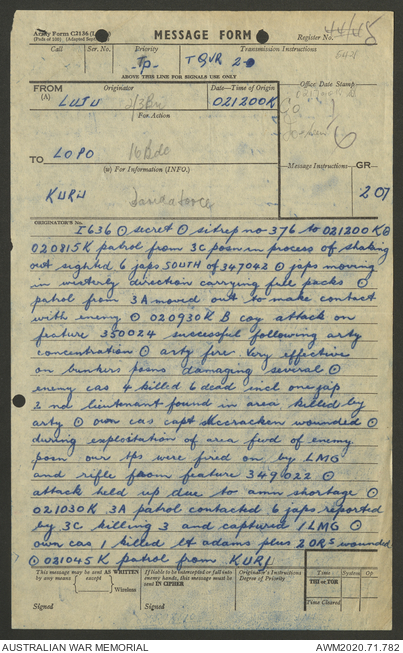 Army Form C2136
MESSAGE FORM
Register No. 44/48
Call Ser. No. Priority Transmission Instructions
TQVR 2
ABOVE THIS LINE FOR SIGNALS USE ONLY
FROM (A) Originator Date—Time of Origin Office Date Stamp
LUTU 2/3 Bn 021200K
For Action
TO LOPO 16 Bde
(W) For Information (INFO.) Message Instructions GR
KURU 207
ORIGINATOR'S No.
I636 ⊙ secret ⊙ sitrep no 376 to 021200K ⊙
020815K patrol from 3C posn in process of shaking
out sighted 6 japs SOUTH of 347042 ⊙ japs moving
in westerly direction carrying full packs ⊙
patrol from 3A moved out to make contact
with enemy ⊙ 020930K B coy attack on
feature 350024 successful following arty
concentration ⊙ arty fire very effective
on bunkers posns damaging several ⊙
enemy cas 4 killed 6 dead incl one jap
2 nd lieutenant found in area killed by
arty ⊙ own cas capt Mccracken wounded ⊙
during exploitation of area fwd of enemy
posn our tps were fired on by LMG
and rifle from feature 349022 ⊙
attack held up due to amn shortage ⊙
021030K 3A patrol contacted 6 japs reported
by 3C killing 3 and captured 1 LMG ⊙
own cas 1 killed lt adams plus 2 ORs wounded
⊙ 021045K patrol from KURI
This message may be sent AS WRITTEN by any means except Wireless
If liable to be intercepted or fall into enemy hands, this message must be sent IN CIPHER
Originator's Instructions Degree of Priority
Time System Op
THI or TOR
Time Cleared
Signed Signed
AUSTRALIAN WAR MEMORIAL AWM2020.71.782